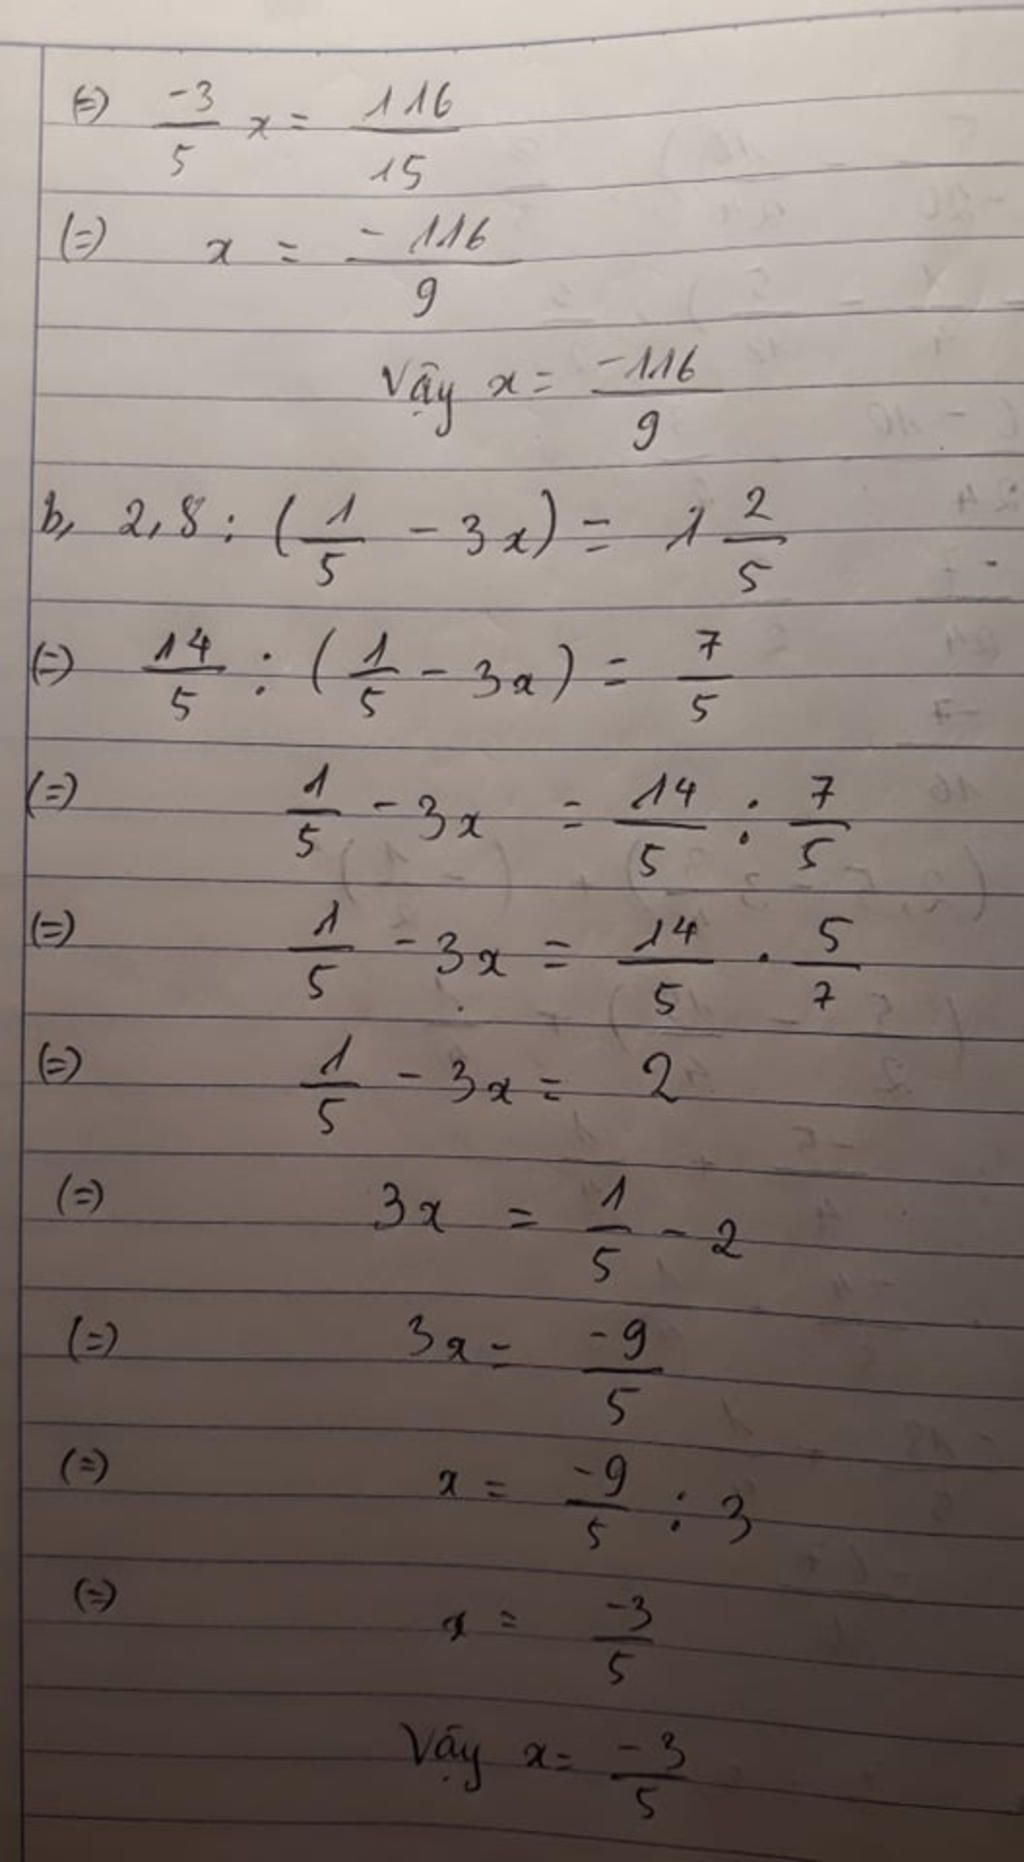 (=) -3/5 x = 116/15
(=) x = -116/9
Vậy x = -116/9
b, 2,8 : (1/5 - 3x) = 1 2/5
(=) 14/5 : (1/5 - 3x) = 7/5
(=) 1/5 - 3x = 14/5 : 7/5
(=) 1/5 - 3x = 14/5 . 5/7
(=) 1/5 - 3x = 2
(=) 3x = 1/5 - 2
(=) 3x = -9/5
(=) x = -9/5 : 3
(=) x = -3/5
Vậy x = -3/5